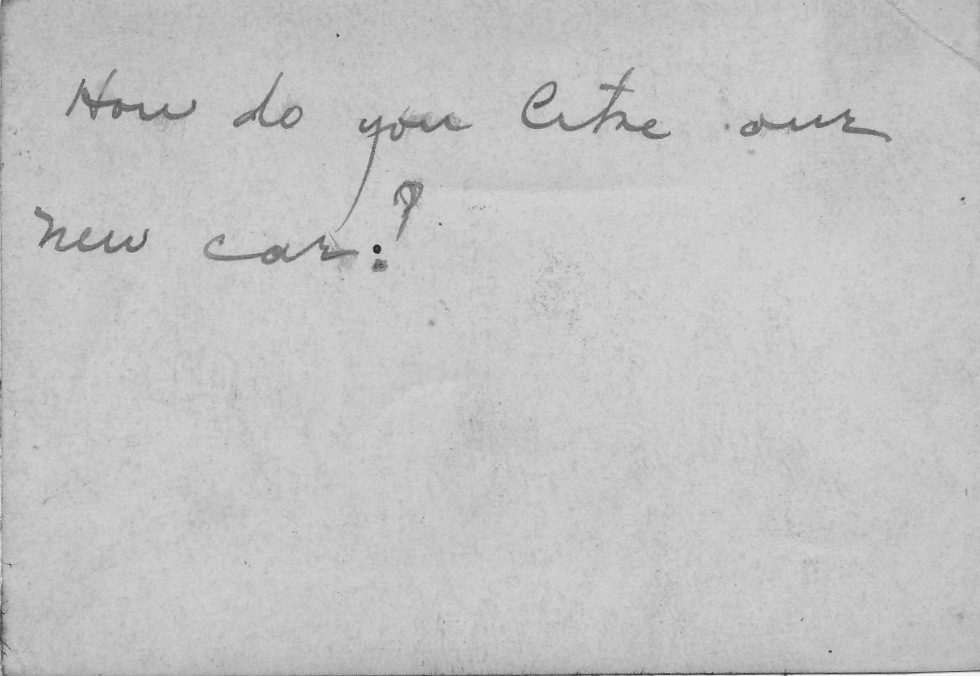 How do you like our
new car?